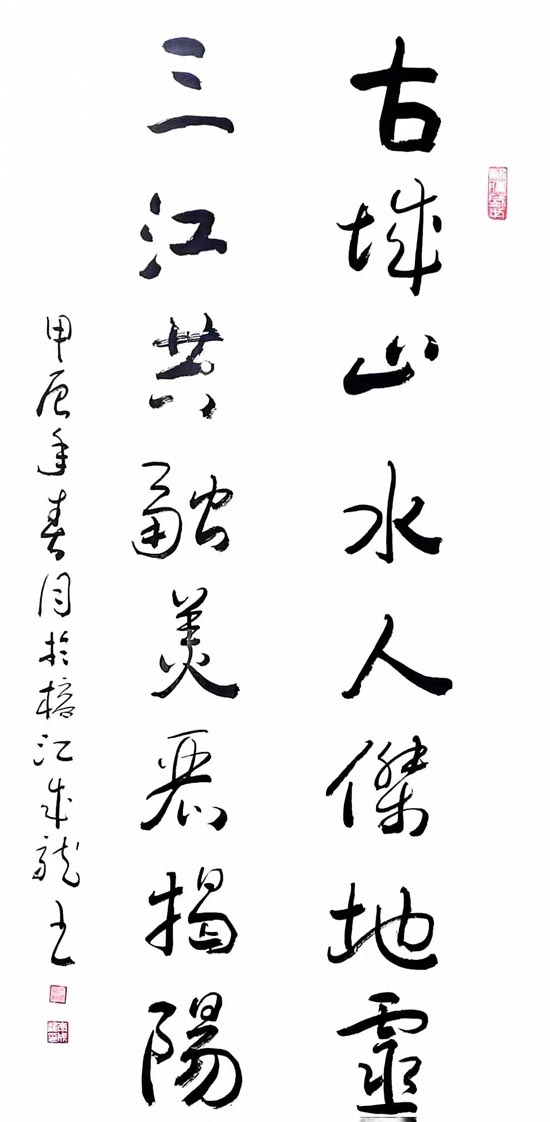 古城山水人傑地靈
三江共融美麗揭陽
甲辰年春月於榕江成龍書